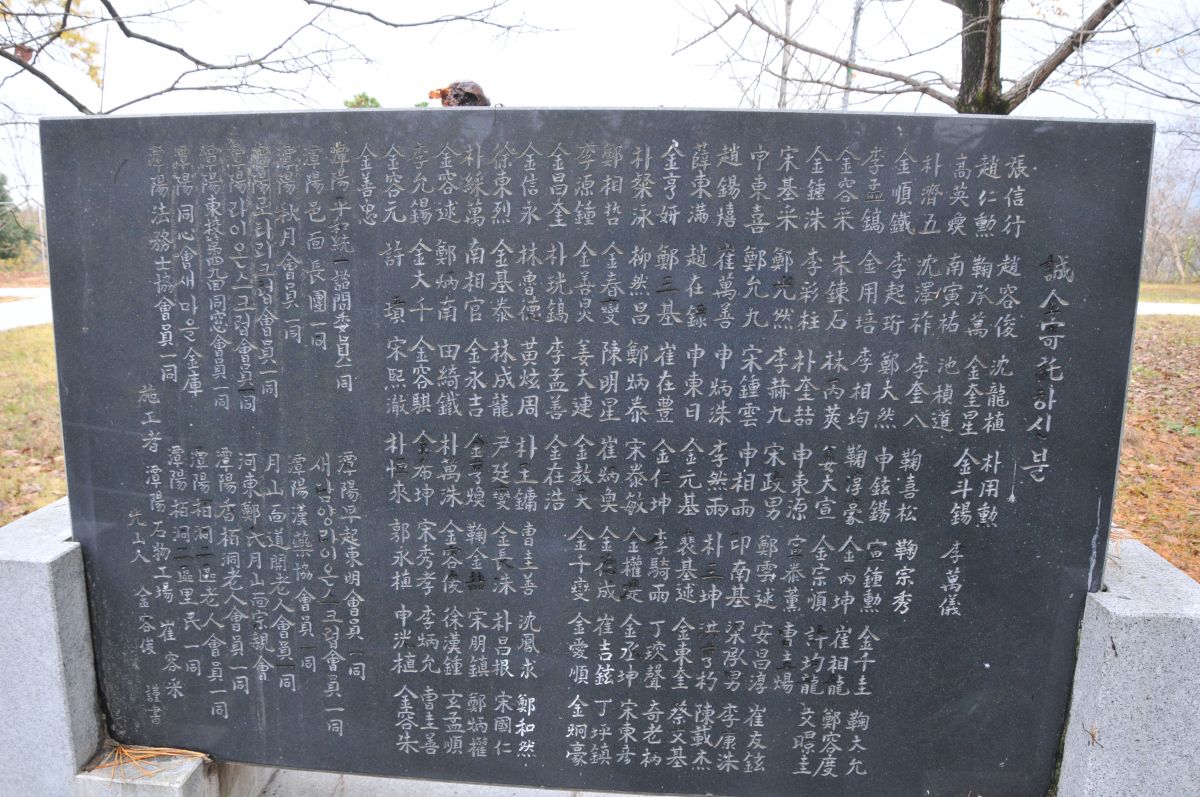 誠金寄託하신분
張信行 趙容俊 沈龍植 朴用勳
趙仁勳 鞠承萬 金奎星 金斗錫 李萬儀
高英煥 南寅祐 池楨道
朴濟五 沈澤祚 李奎八 鞠喜松 鞠宗秀
金順鐵 李起珩 鄭大然 申鉉錫 宣鍾勲 金千圭 鞠大允
李孟鎬 金用培 李相均 鞠淳豪 金丙坤 崔祖龍 鄭容度
金容采 朱錬石 林丙莢 安大宣 金宗順 許圴龍 文㬌圭
金鍾洙 李彩柱 朴奎喆 申東源 宣泰薰 曺圭煬
宋基采 鄭光然 李赫九 宋政男 鄭雲逑 安昌淳 崔友鉉
申東喜 鄭允九 宋鍾雲 申相雨 印南基 梁承男 李康洙
趙錫熺 崔萬善 申炳洙 李然雨 朴三坤 洪丁杓 陳載杰
薛東滿 趙在錄 申東日 金元基 裵基逑 金東奎 蔡文基
金亨妍 鄭三基 崔在豊 金仁坤 李騎雨 丁琰聲 奇老柄
朴粲泳 柳然昌 鄭炳泰 宋泰敏 金權是 金丞坤 宋東彦
鄭相哲 金春燮 陳明星 崔炳奥 金德成 崔吉鉉 丁坪鎮
李源鍾 金善昊 姜大連 金敎又 金千變 金愛順 金炯豪
金昌奎 朴珖鎬 李孟善 金在浩
金信永 林魯德 黃炫周 朴玉鏞 曺圭善 沈鳳求 鄭和然
徐東烈 金基泰 林成龍 尹廷燮 金長洙 朴昌根 宋國仁
朴綵萬 南相官 金永吉 金亨煥 鞠金喆 宋朋鎮 鄭炳權
金容逑 鄭炳南 田綺鐵 朴萬洙 金容俊 徐漢鍾 玄孟順
李允錫 金大千 金容騏 金布坤 宋秀孝 李炳允 曺圭善
金容元 許塤 宋熙澈 朴恒來 郭永植 申洸植 金容朱
金善忠
潭陽平和統一諮問委員一同 潭陽早起東明會員一同
潭陽邑面長團一同 새담양라이온스크럽會員一同
潭陽秋月會員一同 潭陽漢藥協會員一同
潭陽로타리크럽會員一同 月山面道開老人會員一同
潭陽라이온스크럽會員一同 河東鄭氏月山面宗親會
潭陽東校第九回同窓會員一同 潭陽香栢洞老人會員一同
潭陽同心會새마을金庫 潭陽栢洞二區老人會員一同
潭陽法務士協會員一同 潭陽栢洞二區里民一同
施工者 潭陽石物工場 崔容采
光山人 金容俊 謹書